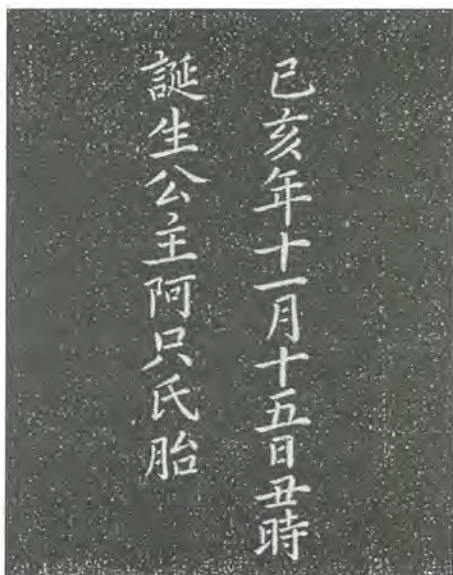 己亥年十一月十五日丑時
誕生公主阿只氏胎